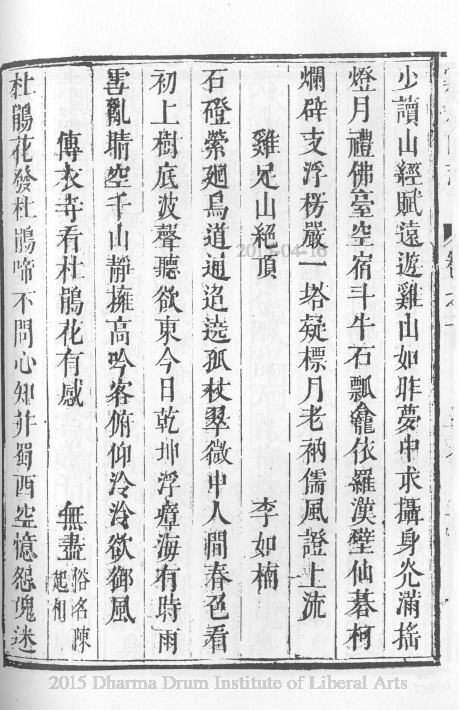 少讀山經賦遠遊雞山如昨夢中求攝身光滿搖
燈月禮佛臺空宿斗牛石瓢龕依羅漢壁仙碁柯
爛辟支浮楞嚴一塔凝標月老衲儒風證上流
雞足山絕頂 李如楠
石磴縈廻鳥道通迢遶孤杖翠微中人間春色看
初上樹底波聲聽欲東今日乾坤浮瘴海有時雨
雪亂晴空千山靜擁高吟客俯仰泠泠欲御風
傳衣寺看杜鵑花有感 無盡 俗名陳起相
杜鵑花發杜鵑啼不問心知非蜀西空憶怨魂迷
2015-04-16
2015 Dharma Drum Institute of Liberal Arts